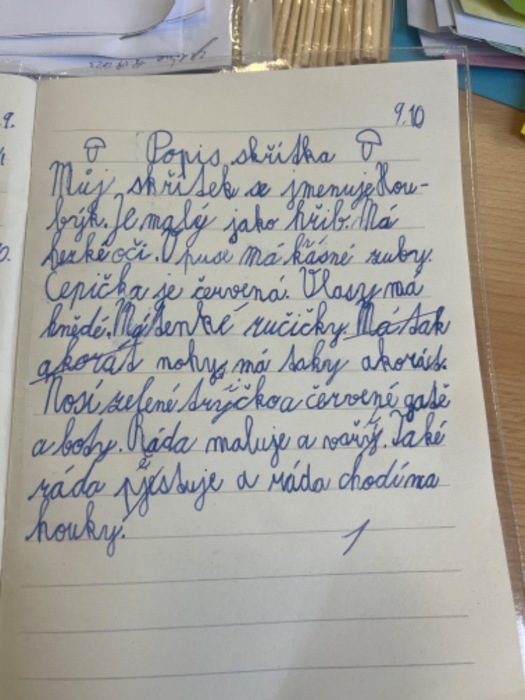 9.10
Popis skřítka
Můj skřítek se jmenuje Hou-
býk. Je malý jako hřib. Má
hezké oči. V puse má kásné zuby.
Čepička je červená. Vlasy má
hnědé. Má tenké ručičky. Má tak
akorát nohy má taky akorát.
Nosí zelené tryčko a červené gatě
a boty. Ráda maluje a vaří. Také
ráda pěstuje a ráda chodí na
houky.
1